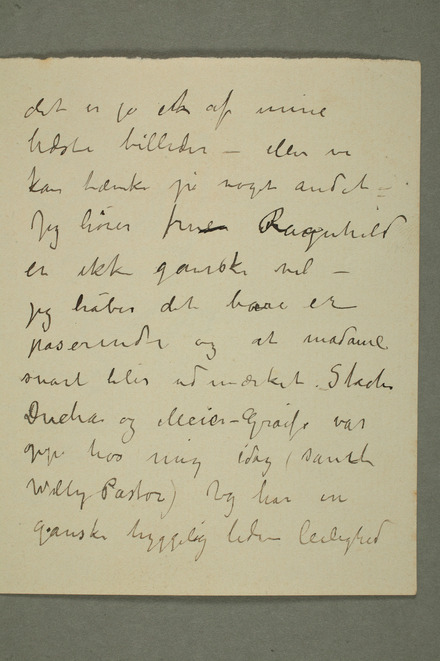 det er jo et af mine
bedste billeder – eller vi
kan tænke på noget andet –
Jeg hører fruen Ragnhild
er ikke ganske vel –
jeg håber det bare er
paserende og at madame
snart blir udmærket. Stachu
Duchas og Meier-Gräfe var
oppe hos mig idag (samt
Willy Pastor) Jeg har en
ganske hyggelig liden leilighed